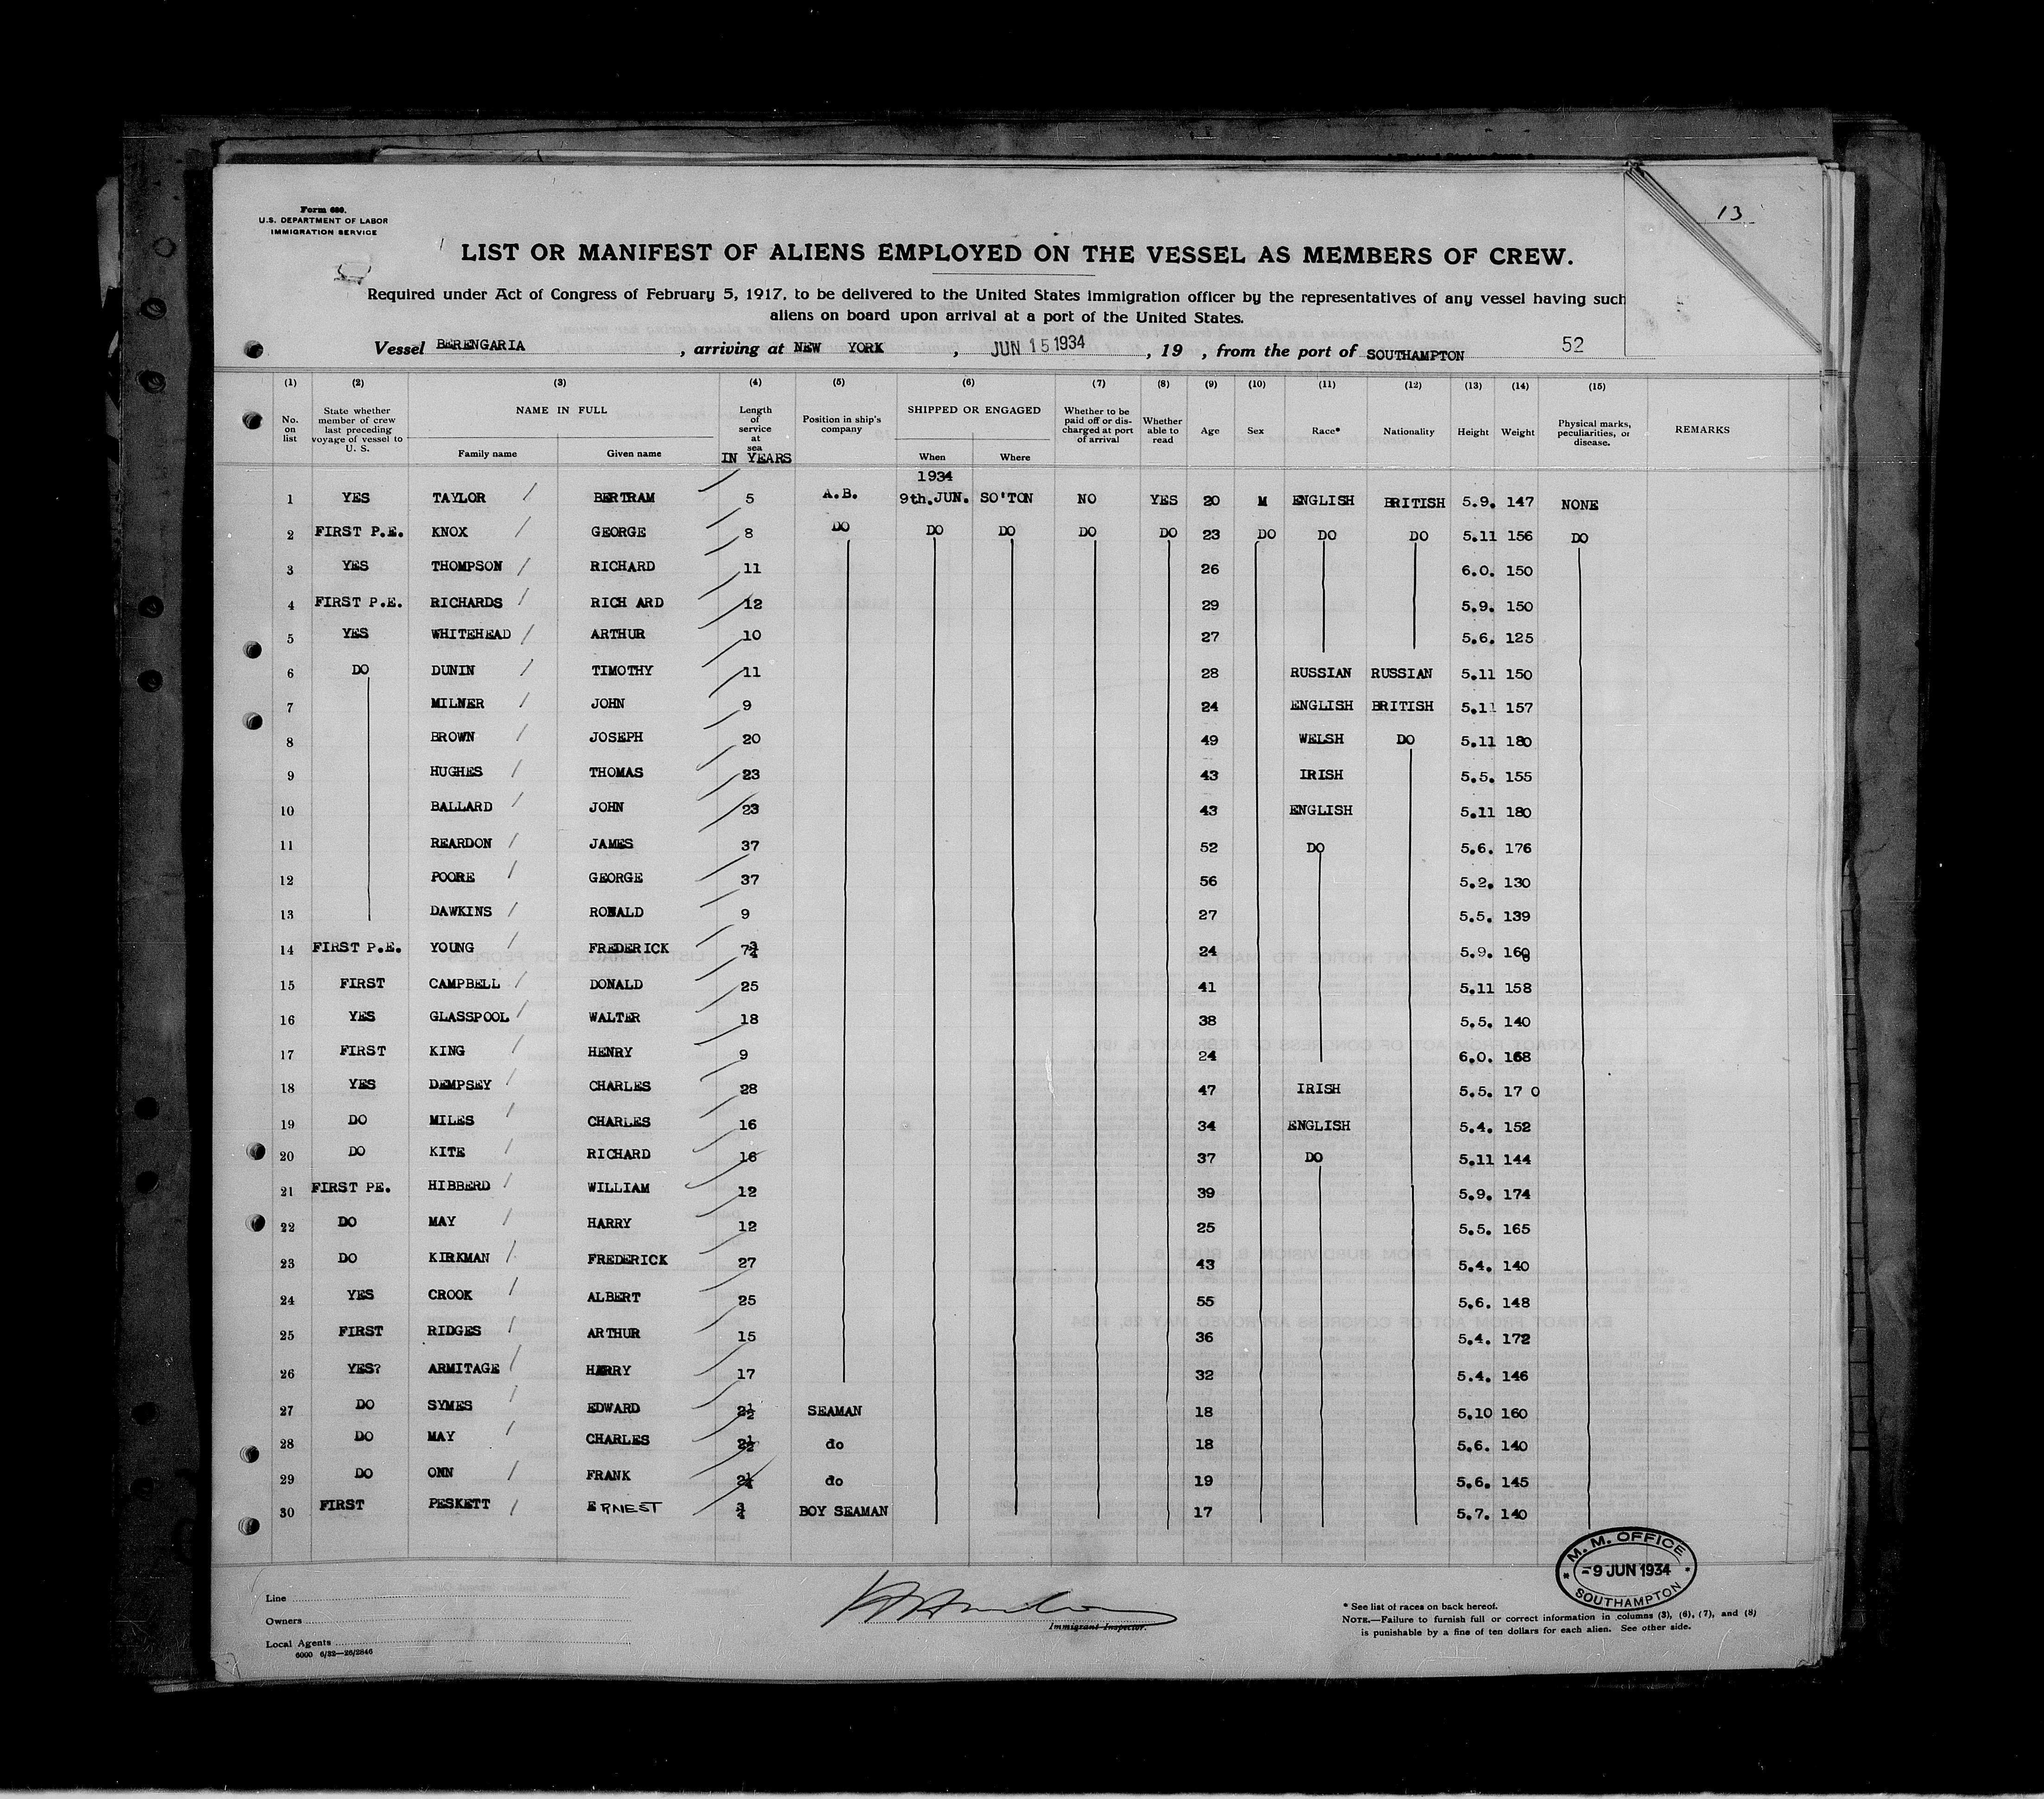 13
Form 680.
U.S. DEPARTMENT OF LABOR
IMMIGRATION SERVICE
LIST OR MANIFEST OF ALIENS EMPLOYED ON THE VESSEL AS MEMBERS OF CREW.
Required under Act of Congress of February 5, 1917, to be delivered to the United States immigration officer by the representatives of any vessel having such
aliens on board upon arrival at a port of the United States.
Vessel BERENGARIA , arriving at NEW YORK , JUN 15 1934 , 19 , from the port of SOUTHAMPTON 52
(1) (2) (3) (4) (5) (6) (7) (8) (9) (10) (11) (12) (13) (14) (15)
No. on list State whether member of crew last preceding voyage of vessel to U. S. NAME IN FULL Family name Given name Length of service at sea IN YEARS Position in ship's company SHIPPED OR ENGAGED When Where Whether to be paid off or discharged at port of arrival Whether able to read Age Sex Race* Nationality Height Weight Physical marks, peculiarities, or disease. REMARKS
1934
1 YES TAYLOR / BERTRAM 5 A.B. 9th.JUN. SO'TON NO YES 20 M ENGLISH BRITISH 5.9. 147 NONE
2 FIRST P.E. KNOX / GEORGE 8 DO DO DO DO DO 23 DO DO DO 5.11 156 DO
3 YES THOMPSON / RICHARD 11 26 6.0. 150
4 FIRST P.E. RICHARDS / RICH ARD 12 29 5.9. 150
5 YES WHITEHEAD / ARTHUR 10 27 5.6. 125
6 DO DUNIN / TIMOTHY 11 28 RUSSIAN RUSSIAN 5.11 150
7 MILNER / JOHN 9 24 ENGLISH BRITISH 5.11 157
8 BROWN / JOSEPH 20 49 WELSH DO 5.11 180
9 HUGHES / THOMAS 23 43 IRISH 5.5. 155
10 BALLARD / JOHN 23 43 ENGLISH 5.11 180
11 REARDON / JAMES 37 52 DO 5.6. 176
12 POORE / GEORGE 37 56 5.2. 130
13 DAWKINS / RONALD 9 27 5.5. 139
14 FIRST P.E. YOUNG / FREDERICK 7¾ 24 5.9. 160
15 FIRST CAMPBELL / DONALD 25 41 5.11 158
16 YES GLASSPOOL / WALTER 18 38 5.5. 140
17 FIRST KING / HENRY 9 24 6.0. 168
18 YES DEMPSEY / CHARLES 28 47 IRISH 5.5. 17 0
19 DO MILES / CHARLES 16 34 ENGLISH 5.4. 152
20 DO KITE / RICHARD 16 37 DO 5.11 144
21 FIRST PE. HIBBERD / WILLIAM 12 39 5.9. 174
22 DO MAY / HARRY 12 25 5.5. 165
23 DO KIRKMAN / FREDERICK 27 43 5.4. 140
24 YES CROOK / ALBERT 25 55 5.6. 148
25 FIRST RIDGES / ARTHUR 15 36 5.4. 172
26 YES? ARMITAGE / HARRY 17 32 5.4. 146
27 DO SYMES / EDWARD 2½ SEAMAN 18 5.10 160
28 DO MAY / CHARLES 2½ do 18 5.6. 140
29 DO ONN / FRANK 2¼ do 19 5.6. 145
30 FIRST PESKETT / ERNEST ¾ BOY SEAMAN 17 5.7. 140
M. M. OFFICE
-9 JUN 1934
SOUTHAMPTON
Line
Owners
Local Agents
6000 6/32—26/2846
Immigrant Inspector.
* See list of races on back hereof.
NOTE.—Failure to furnish full or correct information in columns (3), (6), (7), and (8)
is punishable by a fine of ten dollars for each alien. See other side.